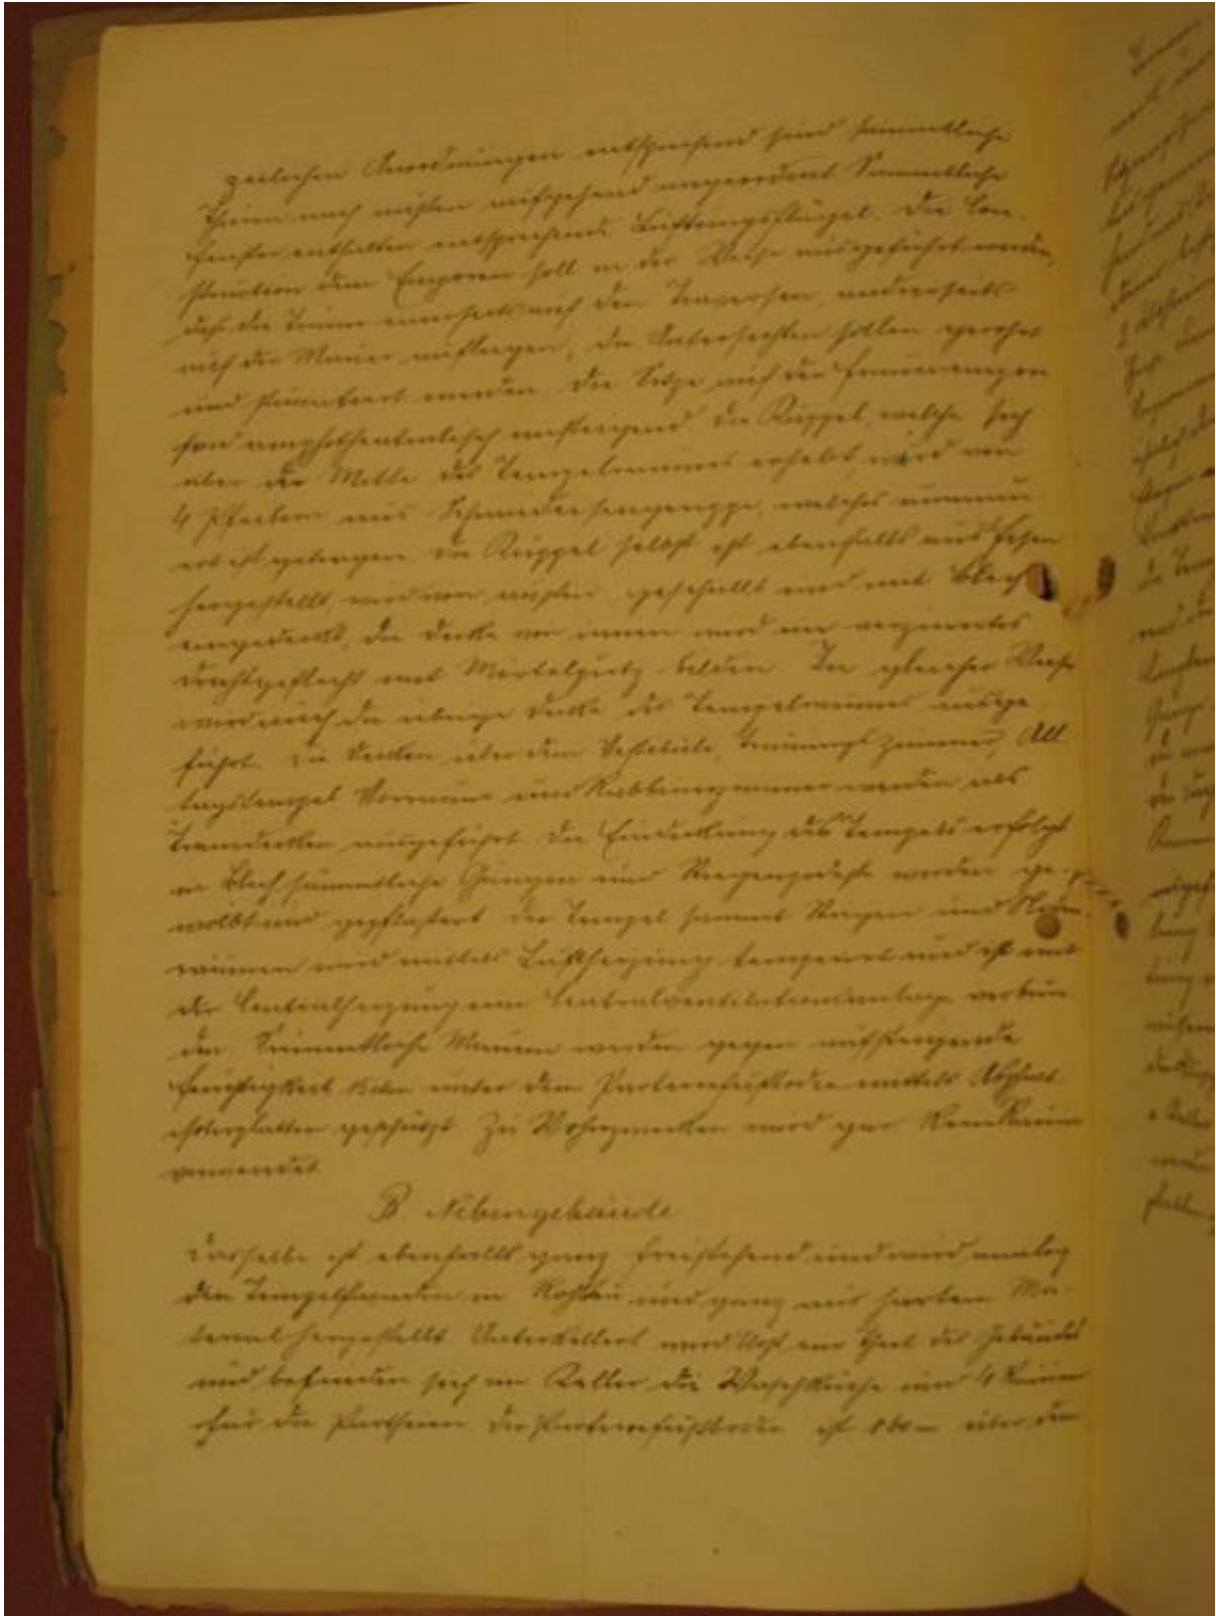 zeilichen Anordnungen entsprechend sind sämmtliche
Thüren nach außen aufgehend angeordnet Sämmtliche
Fenster enthalten entsprechende Lüftungsflügel. Die Con-
struction der Emporen soll in der Weise ausgeführt werden,
daß die Träme einerseits auf den Traversen, anderseits
auf der Mauer aufliegen, die Untersichten sollen gerohrt
und stuccatiert werden. Die Sitze auf der Frauenempore
sind amphitheatralisch ansteigend. Die Kuppel, welche sich
über der Mitte des Tempelraumes erhebt wird von
4 Pfeilern aus Schmiedeeisengerippe, welches ummau-
ert ist getragen. Die Kuppel selbst ist ebenfalls aus Eisen
hergestellt, wird von außen geschallt und mit Blech
eingedeckt, die Decke von innen wird ein verzinktes
Drahtgeflecht mit Mörtelputz bilden. In gleicher Weise
wird auch die übrige Decke des Tempelraumes ausge-
führt. Die Decken über dem Vestibule, Trauungszimmer, All
tagstempel Vorraum und Rabbinerzimmer werden als
Tramdecken ausgeführt. Die Eindeckung des Tempels erfolgt
in Blech, sämmtliche Gänge und Stiegenpodeste werden ge-
wölbt und gepflastert der Tempel sammt Stiegen und Neben-
räumen wird mittels Luftheizung temperiert und ist mit
der Centralheizung eine Centralventilationsanlage verbun-
den. Sämmtliche Mauern werden gegen aufsteigende
Feuchtigkeit unter dem Parterrefußboden mittels Asphalt-
isolierplatten geschützt. Zu Wohnzwecken wird gar kein Raum
verwendet.
B. Nebengebäude
Dasselbe ist ebenfalls ganz freistehend und wird analog
den Tempel in Rohbau und ganz aus hartem Ma-
terial hergestellt Unterkellert wird bloß ein Theil des Gebäudes
und befinden sich im Keller die Waschküche und 4 Räume
für die Partheien Der Parterrefußboden ist über dem